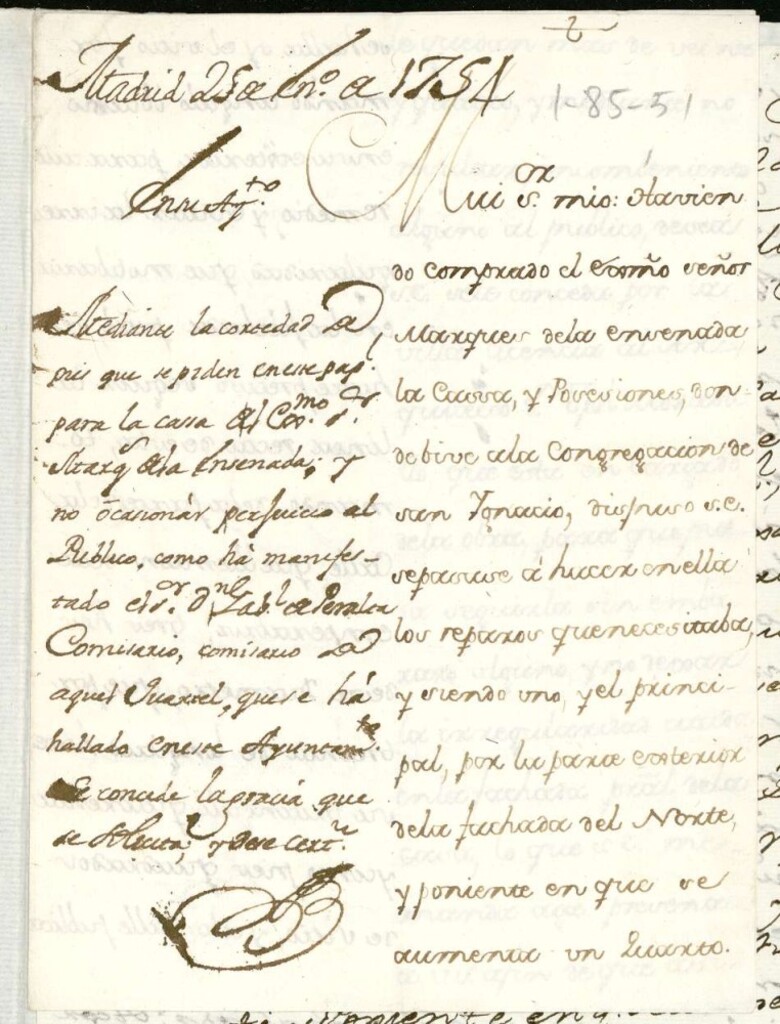 2
Madrid 25 de En.º de 1754
1-85-51
En su Ay.to
Mui s.or mio: Havien
do comprado el Excmo señor
Marques dela ensenada
la Cassa, y Posesiones, don-
de vive ala Congregacion de
san Ygnacio, dispuso s.e.
sepasase á hacer en ella
los reparos que necesitaba,
y siendo uno, y el princi-
pal, por la parte exterior
dela fachada del Norte,
y poniente en que se
aumenta un Quarto.
Mediante la cortedad de
pies que se piden en este pap.l
para la cassa del Ex.mo s.or
Marq.s de la Ensenada, y
no ocasionár perjuicio al
Publico, como há manifes-
tado el s.or d.n de Peralta
Comisario, comisario de
aquel Quartel, que se há
hallado en este Ayuntam.to
Se concede la gracia, que
se solicita, y dese cert.n